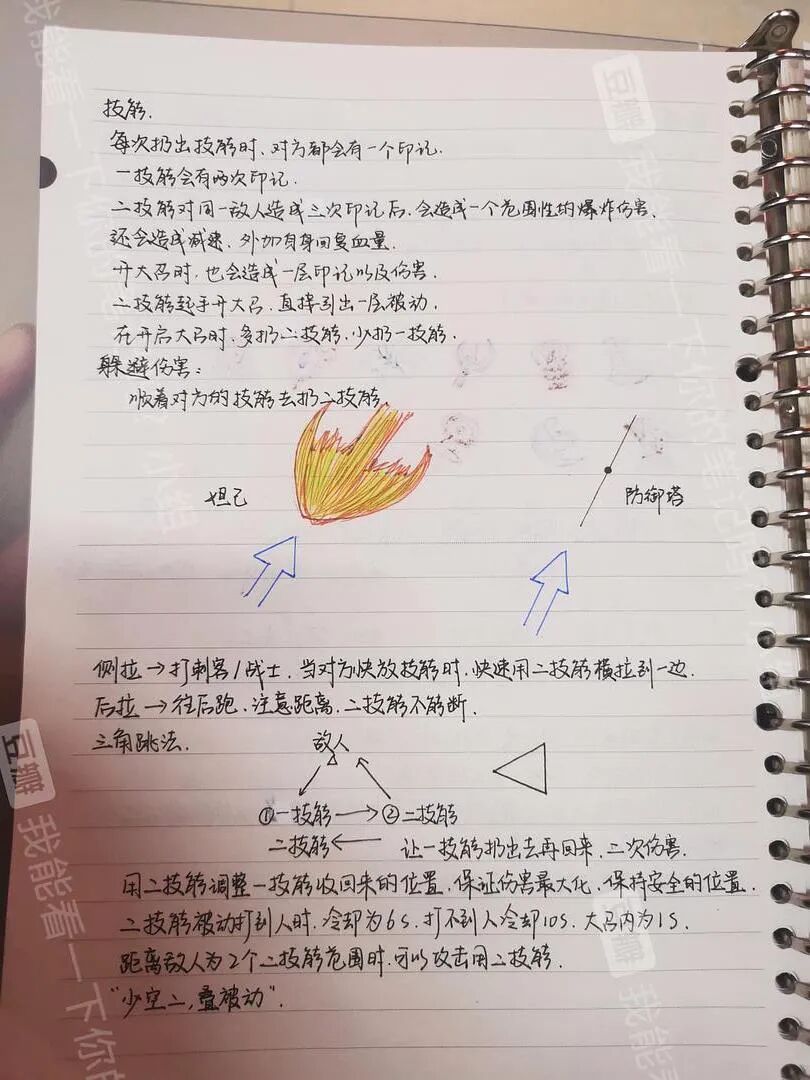 技能.
每次扔出技能时、对方都会有一个印记.
一技能会有两次印记.
二技能对同一敌人造成三次印记后、会造成一个范围性的爆炸伤害、
还会造成减速、外加自身回复血量.
开大召时，也会造成一层印记以及伤害.
二技能起手开大召、直接引出一层被动.
在开启大召时、多扔二技能、少扔一技能.
躲避伤害：
顺着对方的技能去扔二技能.
妲己
防御塔
侧拉→打刺客/战士、当对方快放技能时、快速用二技能横拉到一边.
后拉→往后跑、注意距离、二技能不能断.
三角跳法.
敌人
①一技能→②二技能
二技能← 让一技能扔出去再回来、二次伤害.
用二技能调整一技能收回来的位置、保证伤害最大化、保持安全的位置.
二技能被动打到人时、冷却为6s、打不到人冷却10s、大召内为1s.
距离敌人为2个二技能范围时、可以攻击用二技能.
“少空二，叠被动”.
豆瓣
我能看一下你的
豆瓣
我能看一下你的